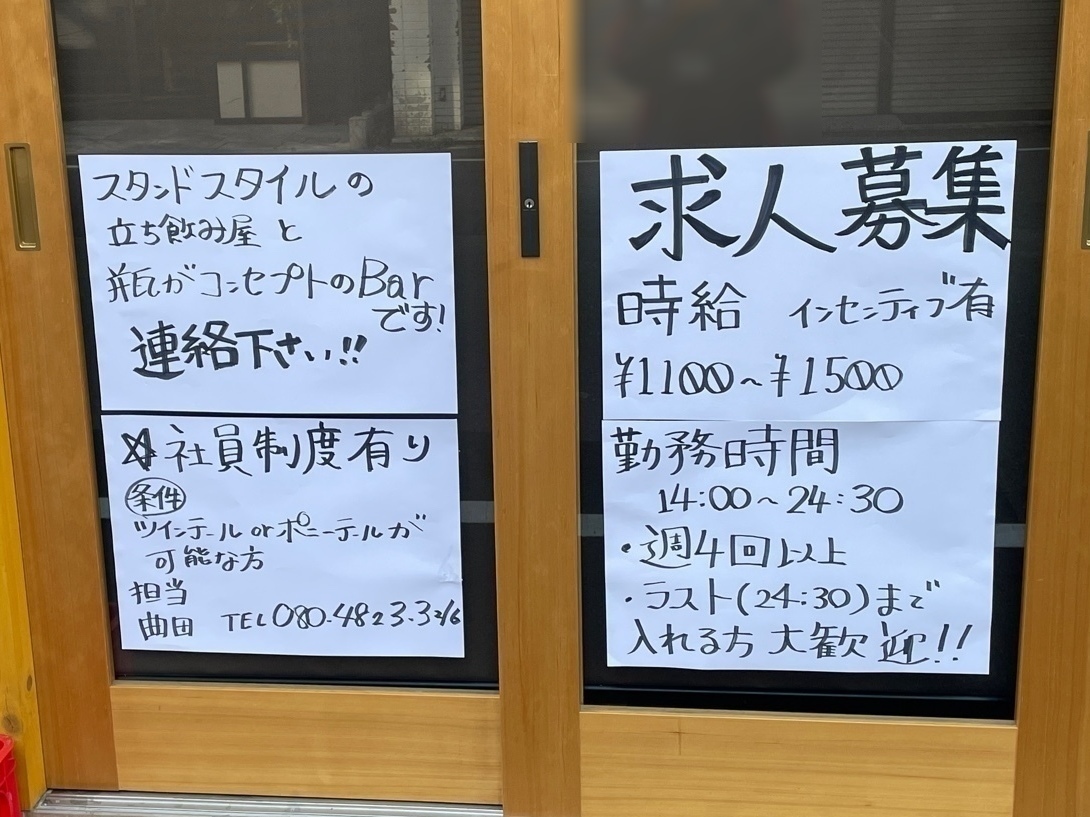 スタンドスタイルの
立ち飲み屋と
瓶がコンセプトのBar
です!
連絡下さい!!
社員制度有り
条件
ツインテール orポニーテールが
可能な方
担当
曲田 TEL080.4823.3216
求人募集
時給 インセンティブ有
¥1100~¥1500
勤務時間
14:00~24:30
・週4回以上
・ラスト(24:30)まで
入れる方 大歓迎!!